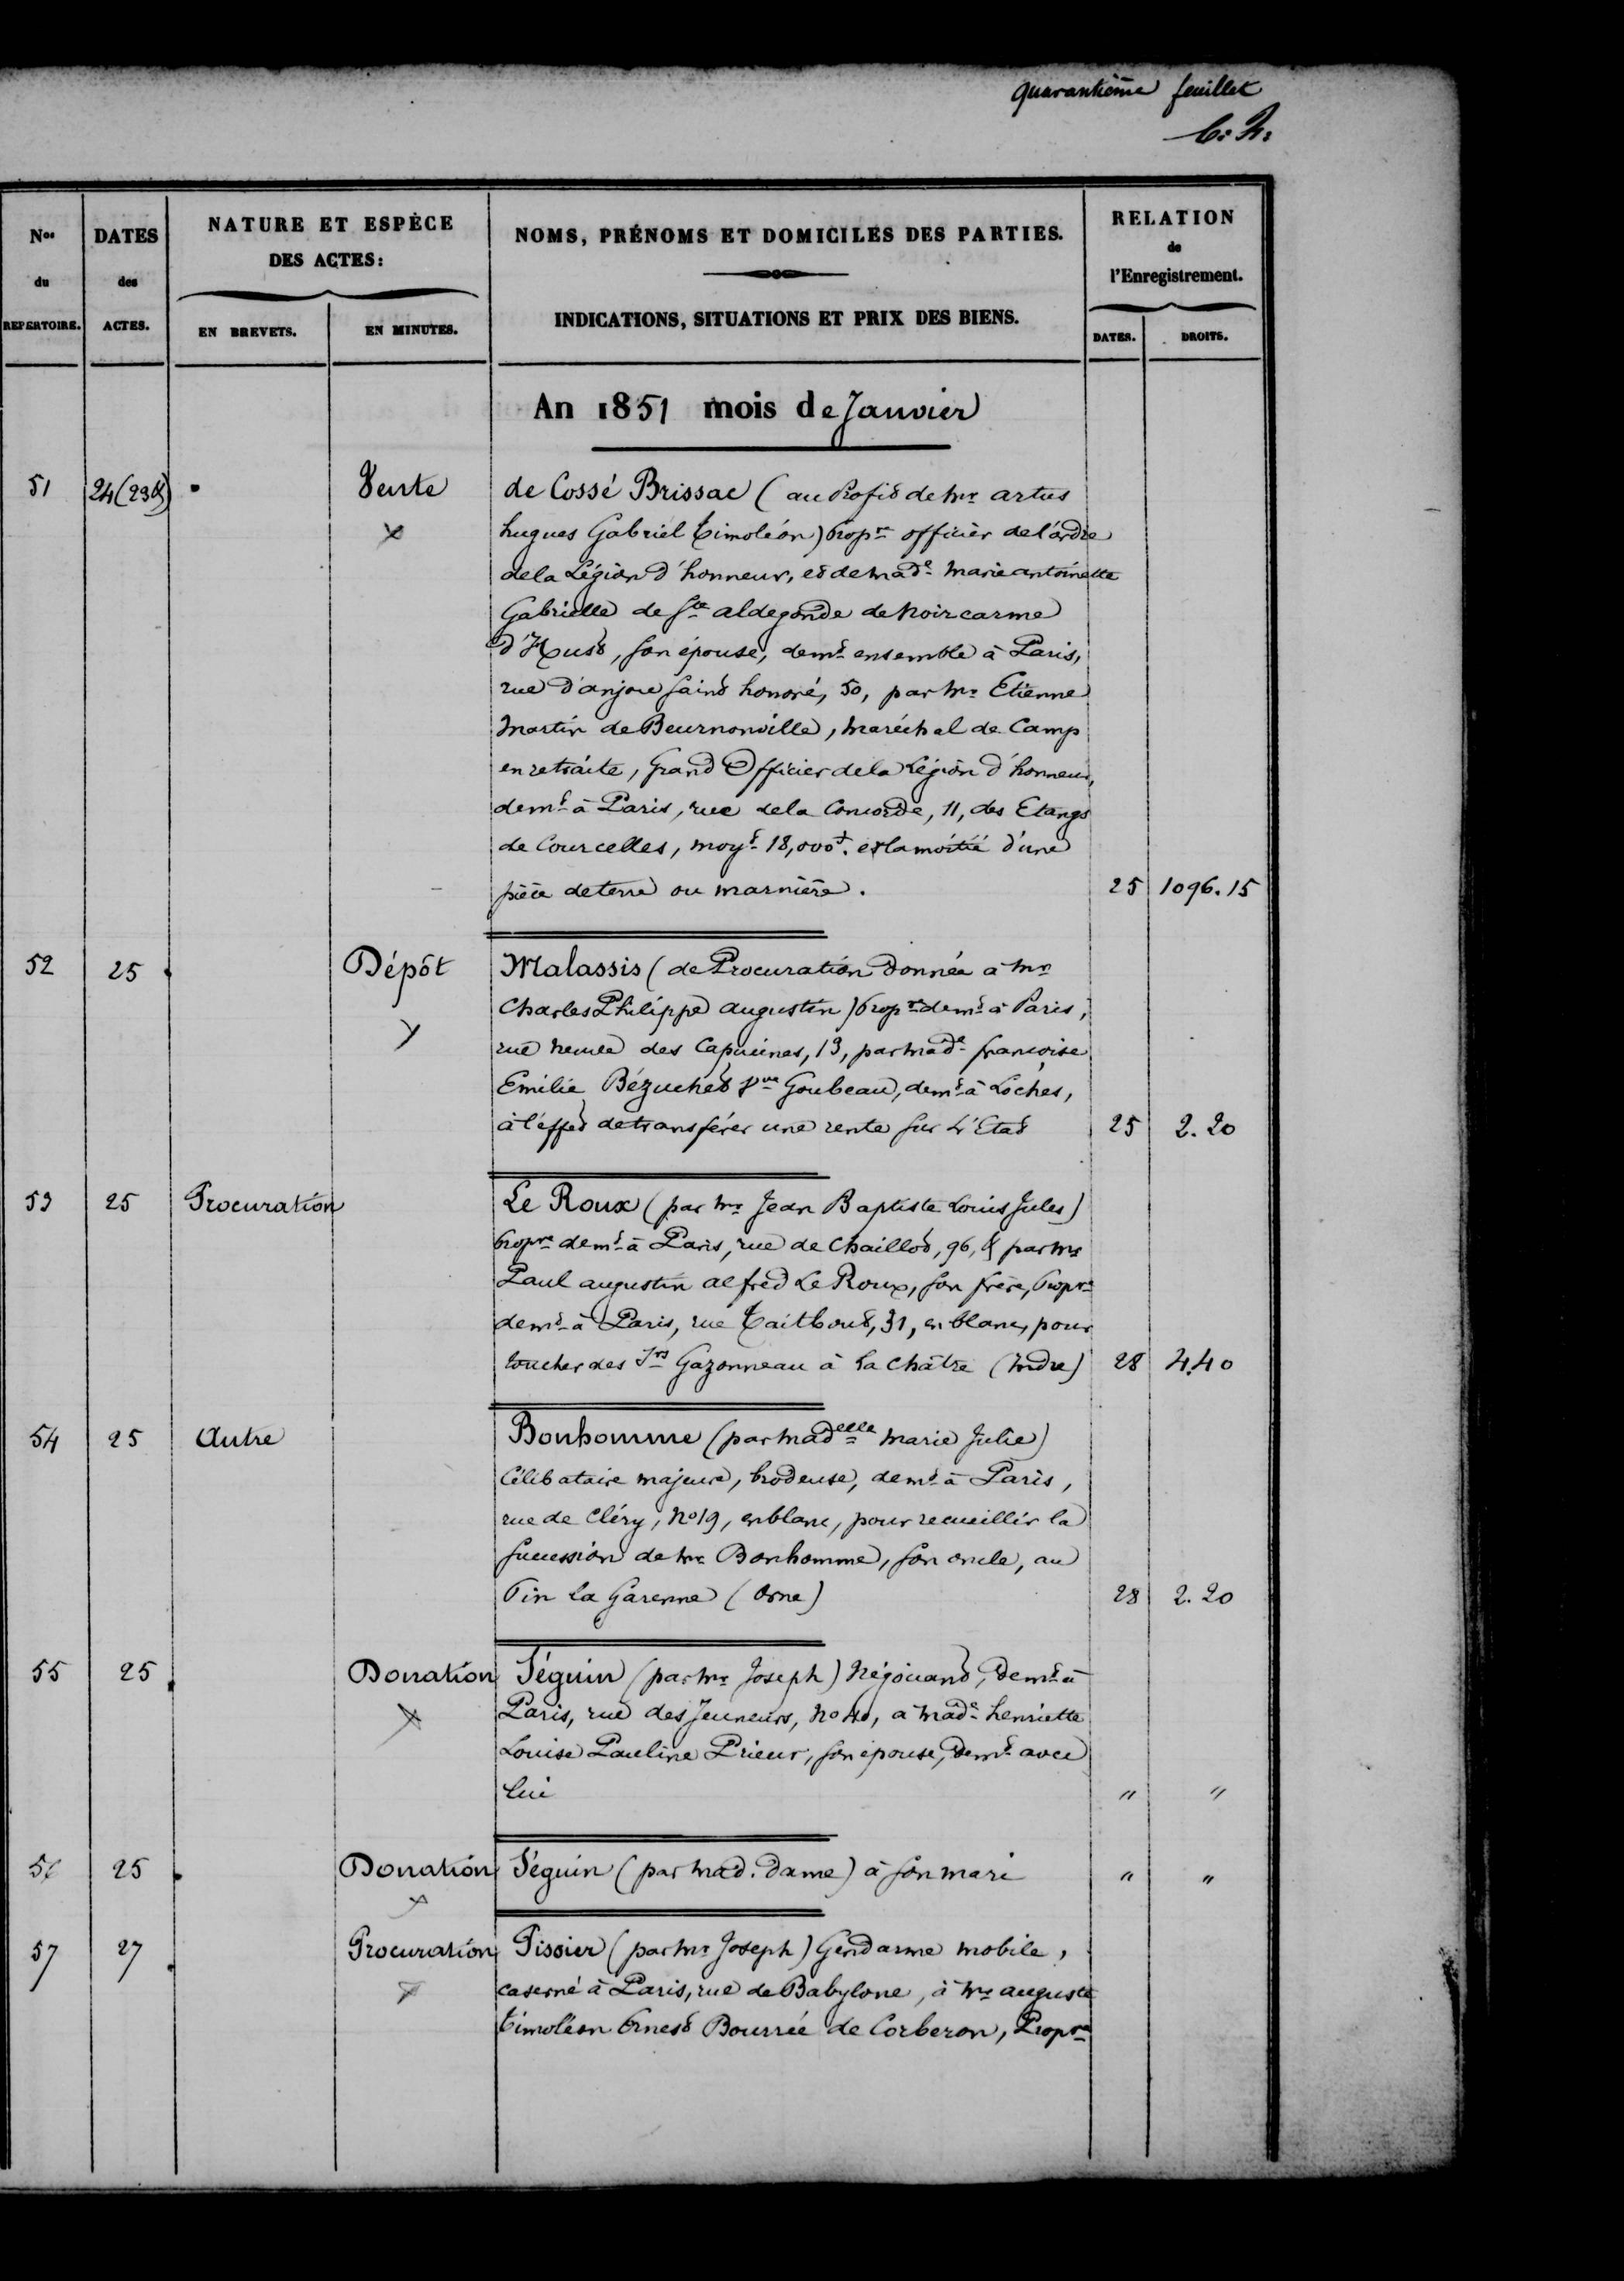 quarantième feuillet
C. h.
Nos du REPERTOIRE.
DATES des ACTES.
NATURE ET ESPÈCE DES ACTES:
EN BREVETS.
EN MINUTES.
NOMS, PRÉNOMS ET DOMICILES DES PARTIES.
INDICATIONS, SITUATIONS ET PRIX DES BIENS.
RELATION de l'Enregistrement.
DATES.
DROITS.
An 1851 mois de Janvier
51 24 (23 &) Vente de Cossé Brissac (au Profit de Mr artus
hugues Gabriel Timoléon) Propre officier de l'ordre
de la Légion d'honneur, et de Made Marie antoinette
Gabrielle de Ste aldegonde de Noircarme
d'Hust, son épouse, demt ensemble à Paris,
rue d'anjou saint honoré, 50, par Mr Etienne
Martin de Beurnonville, Maréchal de Camp
en retraite, Grand Officier de la Légion d'honneur,
demt à Paris, rue de la Concorde, 11, des Etangs
de Courcelles, moyt 18,000f. et la moitié d'une
pièce de terre ou marnière. 25 1096.15
52 25 Dépôt Malassis (de Procuration donnée à Mr
Charles Philippe augustin) Propre demt à Paris,
rue neuve des Capucines, 13, par Made francoise
Emilie Bézuchet Vve Goubeau, demt à Loches,
à l'effet de transférer une rente sur L'Etat 25 2.20
53 25 Procuration Le Roux (par Mr Jean Baptiste Louis Jules)
Propre demt à Paris, rue de Chaillot, 96, & par Mr
Paul augustin alfred Le Roux, son frère, Propre
demt à Paris, rue Taitbout, 31, en blanc, pour
toucher des Srs Gazonneau à La Châtre (Indre) 28 4.40
54 25 Autre Bonhomme (par Madelle Marie Julie)
Célibataire majeure, brodeuse, demt à Paris,
rue de Cléry, No 19, en blanc, pour recueillir la
succession de Mr Bonhomme, son oncle, au
Pin la Garenne (Orne) 28 2.20
55 25 Donation Séguin (par Mr Joseph) Négociant, demt à
Paris, rue des Jeuneurs, No 40, à Made henriette
Louise Pauline Prieur, son épouse, demt avec
lui " "
56 25 Donation Séguin (par Mad. dame) à son mari " "
57 27 Procuration Tissier (par Mr Joseph) Gendarme mobile,
caserné à Paris, rue de Babylone, à Mr auguste
Timoléon Ernest Bourrée de Corberon, Propre